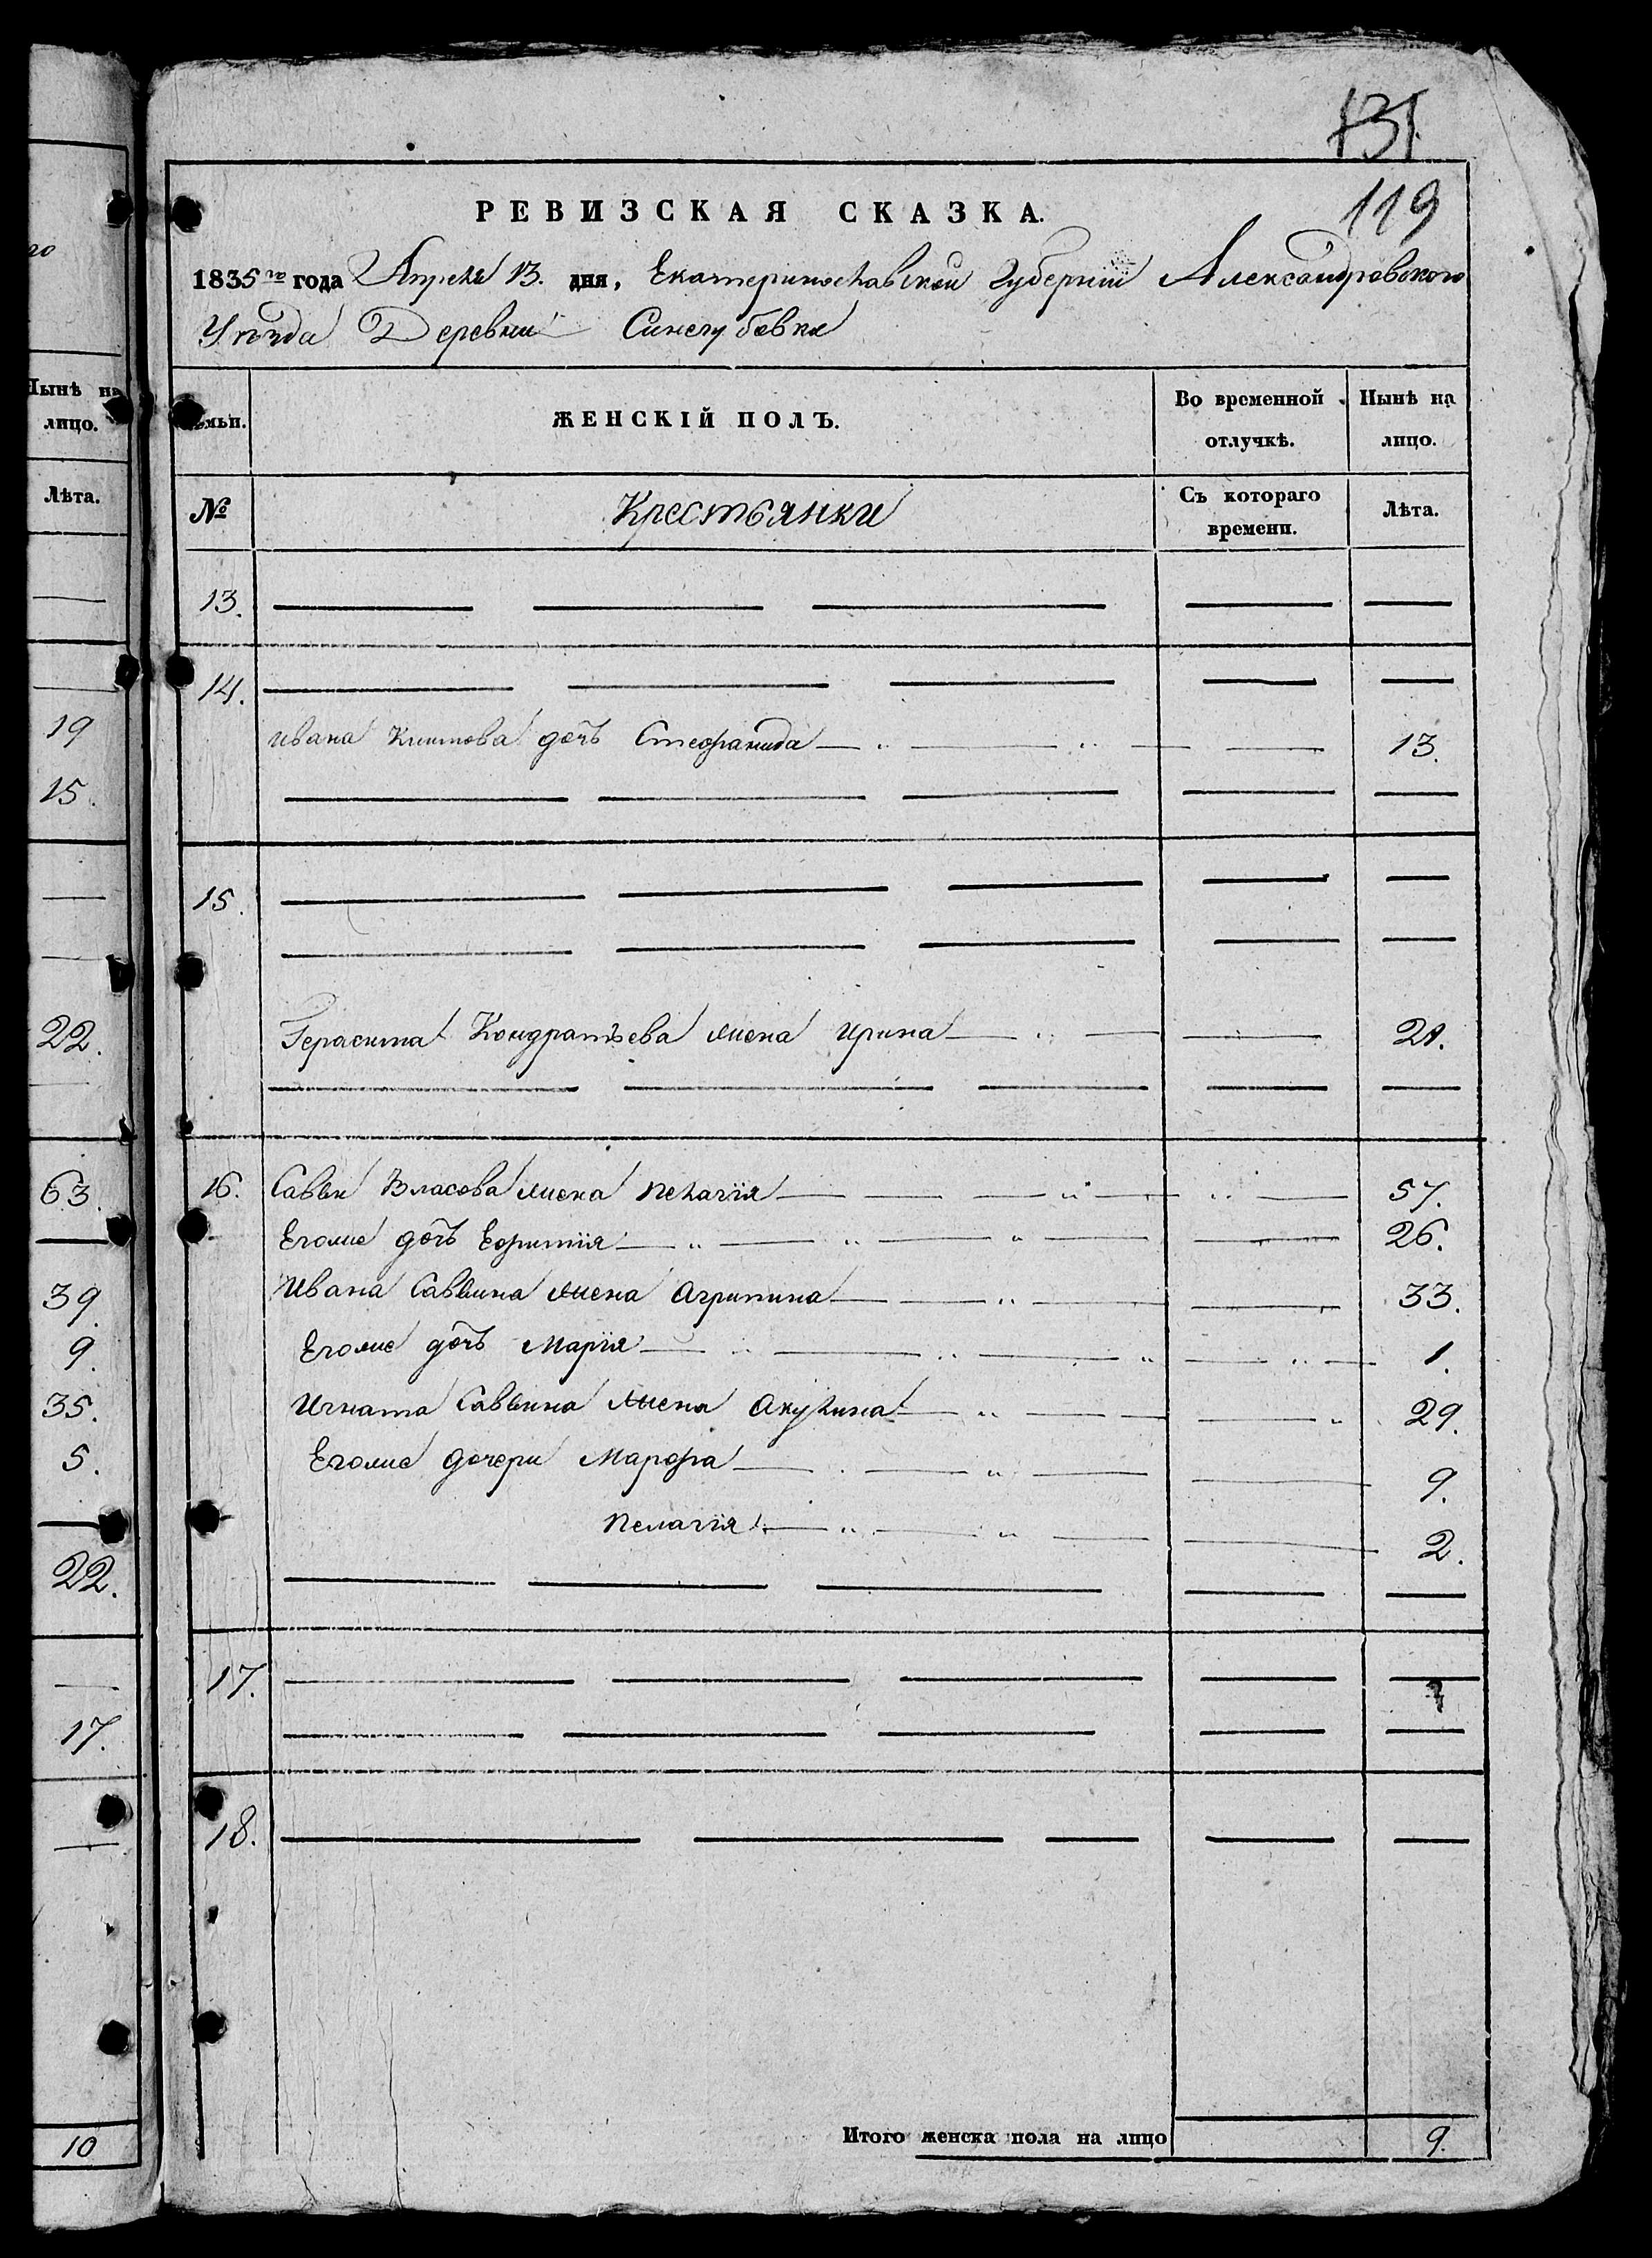 131
119
РЕВИЗСКАЯ СКАЗКА.
1835 го года Апреля 13. дня, Екатеринославской Губерніи Александровского
Уѣзда Деревни Синегубовки
Нынѣ на
лицо.
Лѣта.
19
15.
22.
63.
39.
9.
35.
5.
22.
17.
10
ЖЕНСКІЙ ПОЛЪ.
Во временной отлучкѣ.
Нынѣ на лицо.
№
Крестьянки
Съ котораго времени.
Лѣта.
13.
14.
Ивана дочь Стефанида 13.
15.
Герасима Кондратьева жена Ирина 21.
16. Саввы Власова жена Пелагія 57.
Егоже дочь Ефимія 26.
Ивана Саввина жена Агрипина 33.
Егоже дочь Марія 1.
Игната Саввина жена Акулина 29.
Егоже дочери Марфа 9.
Пелагія 2.
17.
18.
Итого женска пола на лицо 9.